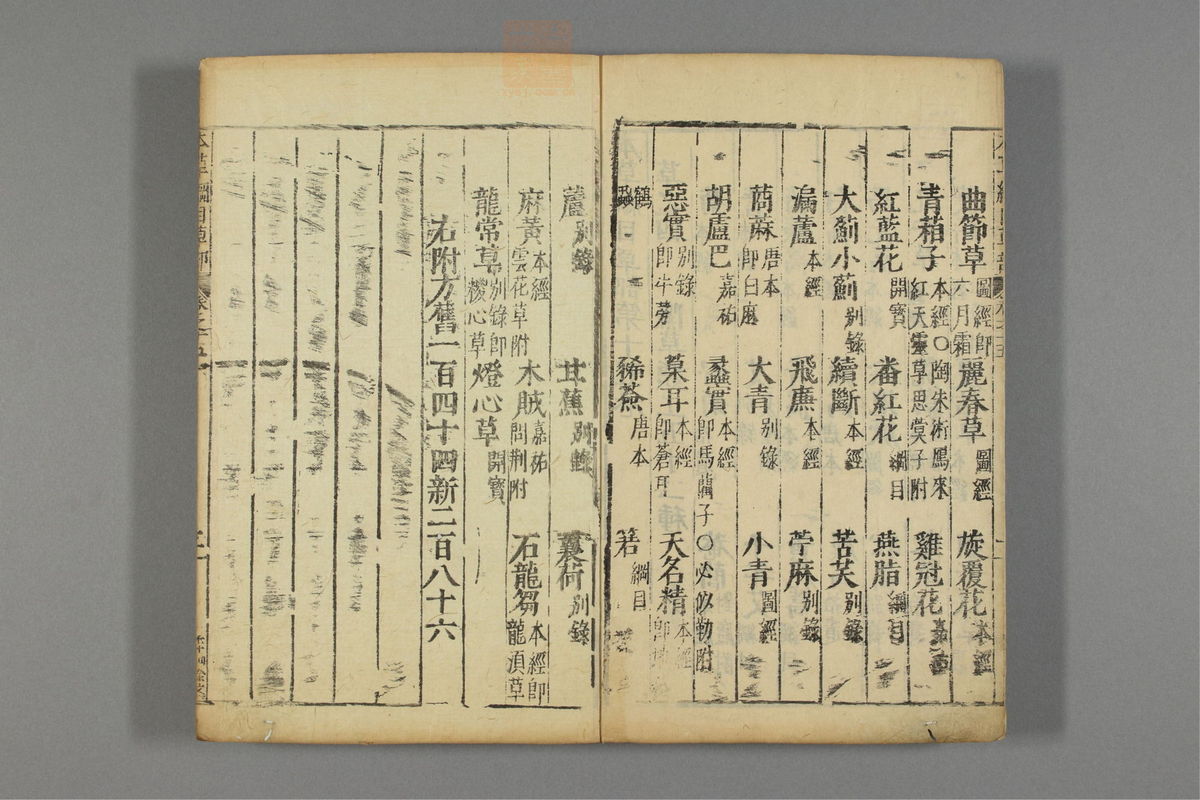 曲節草 圖經即六月霜 麗春草 圖經 旋覆花 本經
青葙子 本經○陶朱術鴈來紅天靈草思蓂子附 雞冠花 嘉
紅藍花 開寶 番紅花 綱目 燕脂 綱目
大薊小薊 別錄 續斷 本經 苦芺 別錄
漏蘆 本經 飛廉 本經 苧麻 別錄
苘麻 唐本即白麻 大青 別錄 小青 圖經
胡盧巴 嘉祐 蠡實 本經即馬藺子○必似勒附
惡實 別錄即牛蒡 葈耳 本經即蒼耳 天名精 本經即
鶴蝨 豨薟 唐本 箬 綱目
蘆 別錄 甘蕉 別錄 蘘荷 別錄
麻黃 本經雲花草附 木賊 嘉祐問荆附 石龍芻 本經即龍湏草
龍常草 別錄即稯心草 燈心草 開寶
右附方舊一百四十四新二百八十六